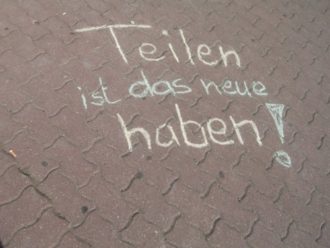 Teilen
ist das neue
haben!